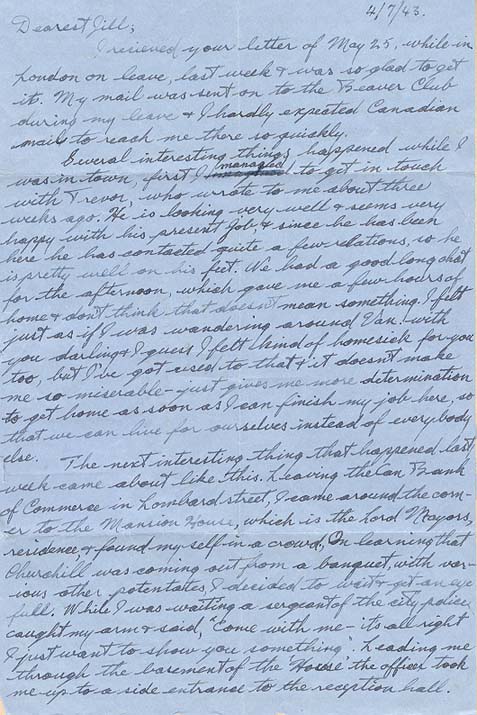 4/7/43.
Dearest Jill;
I recieved your letter of May 25, while in
London on leave, last week & was so glad to get
it. My mail was sent on to the Beaver Club
during my leave & I hardly expected Canadian
mail to reach me there so quickly.
Several interesting things happened while I
was in town, first I managed to get in touch
with Trevor, who wrote to me about three
weeks ago. He is looking very well & seems very
happy with his present job & since he has been
here he has contacted quite a few relations, so he
is pretty well on his feet. We had a good long chat
for the afternoon, which gave me a few hours of
home & don't think that doesn't mean something. I felt
just as if I was wandering around Van. with
you darling & I guess I felt kind of homesick for you
too, but I've got used to that & it doesn't make
me so miserable - just gives me more determination
to get home as soon as I can finish my job here, so
that we can live for ourselves instead of everybody
else.
The next interesting thing that happened last
week came about like this. Leaving the Can Bank
of Commerce in Lombard street, I came around the corn-
er to the Mansion House, which is the Lord Mayors,
residence & found my self in a crowd, On learning that
Churchill was coming out from a banquet, with var-
ious other potentates, I decided to wait & get an eye
full. While I was waiting a sergeant of the city police
caught my arm & said, "Come with me - it's all right
I just want to show you something". Leading me
through the basement of the House the officer took
me up to a side entrance to the reception hall.